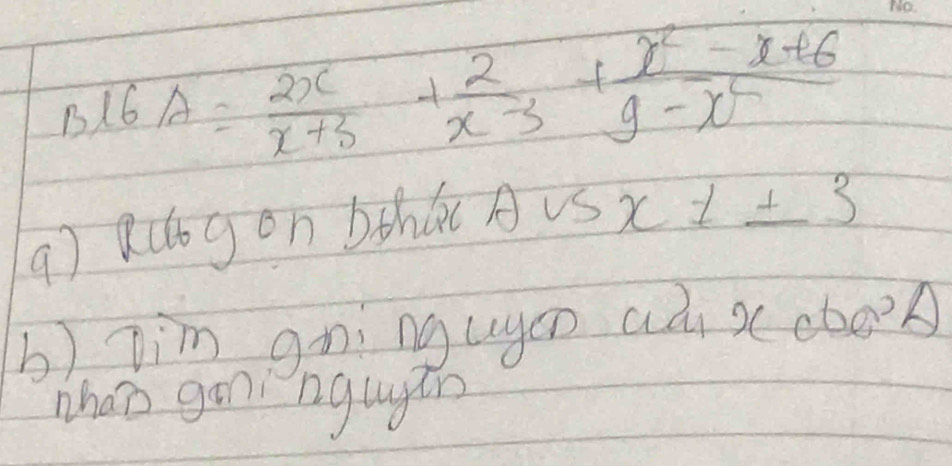 No.
B16 A = \frac{2x}{x+3} + \frac{2}{x-3} + \frac{x² - x+6}{9-x²}
a) Rút gọn bthức A vs x ≠ ± 3
b) Tìm giá nguyên của x để A
nhận giá nguyên